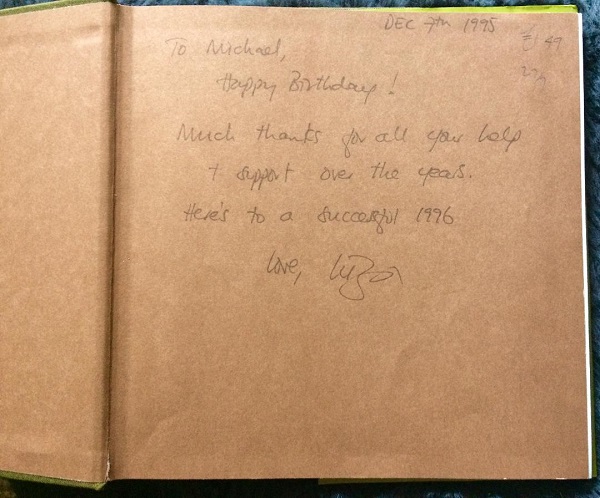 DEC 7th 1995
To Michael,
Happy Birthday!
Much thanks for all your help
+ support over the years.
Here's to a successful 1996
love,